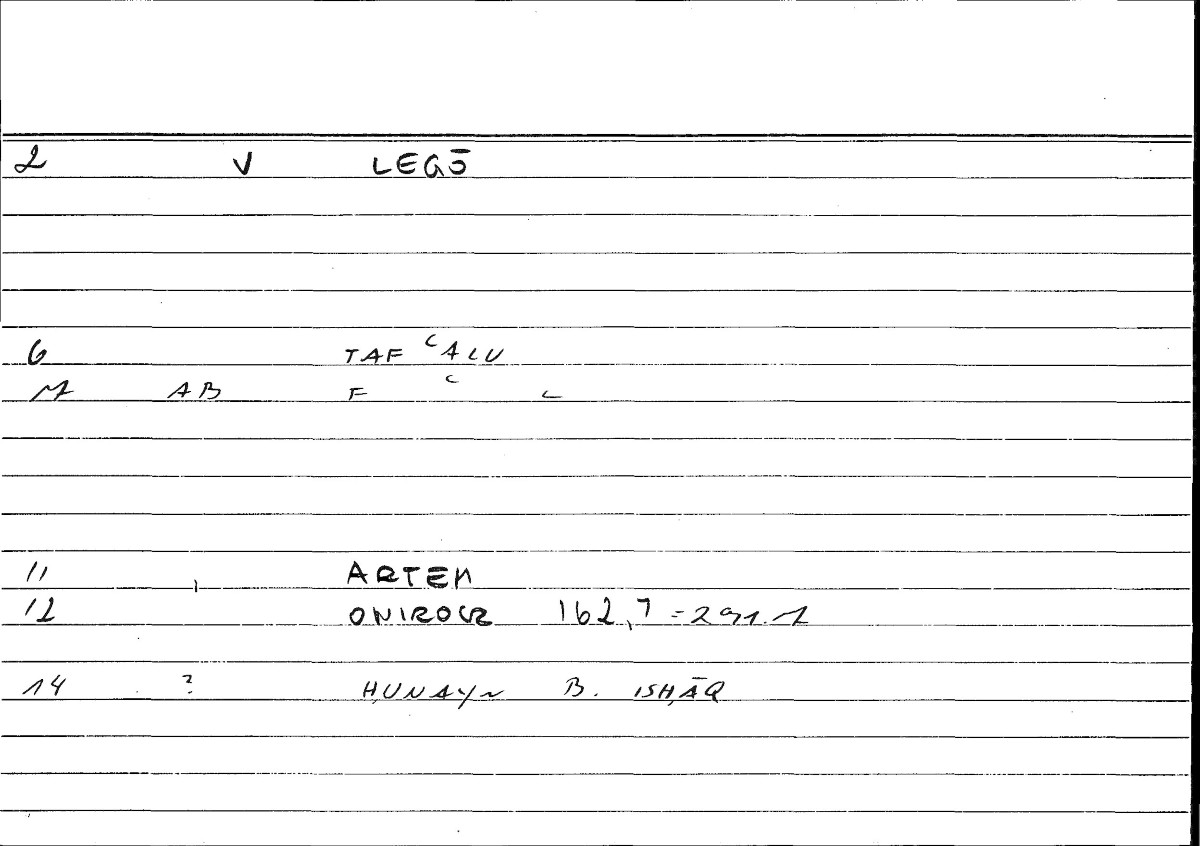 2 V LEGŌ
6 TAF ʿALU
M AB F ʿ L
11 ARTEM
12 ONIROCR 162,7=291.1
14 ? ḤUNAYN B. ISḤĀQ